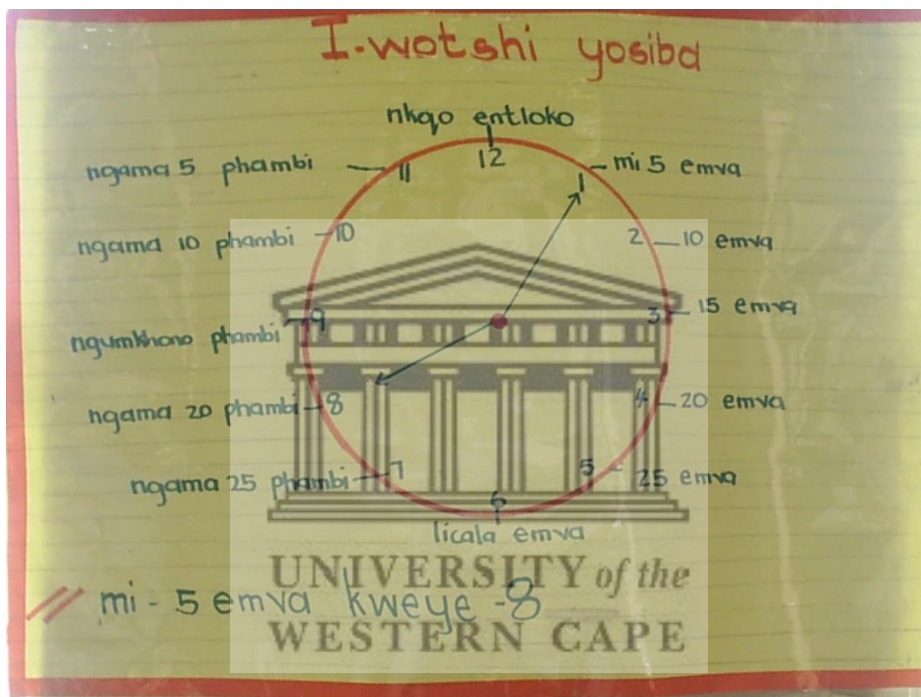 I.wotshi yosiba
nkqo entloko
12
ngama 5 phambi 11
1 mi 5 emva
ngama 10 phambi 10
2 10 emva
ngumkhono phambi 9
3 15 emva
ngama 20 phambi 8
4 20 emva
ngama 25 phambi 7
5 25 emva
6
licala emva
mi - 5 emva kweye - 8
UNIVERSITY of the
WESTERN CAPE